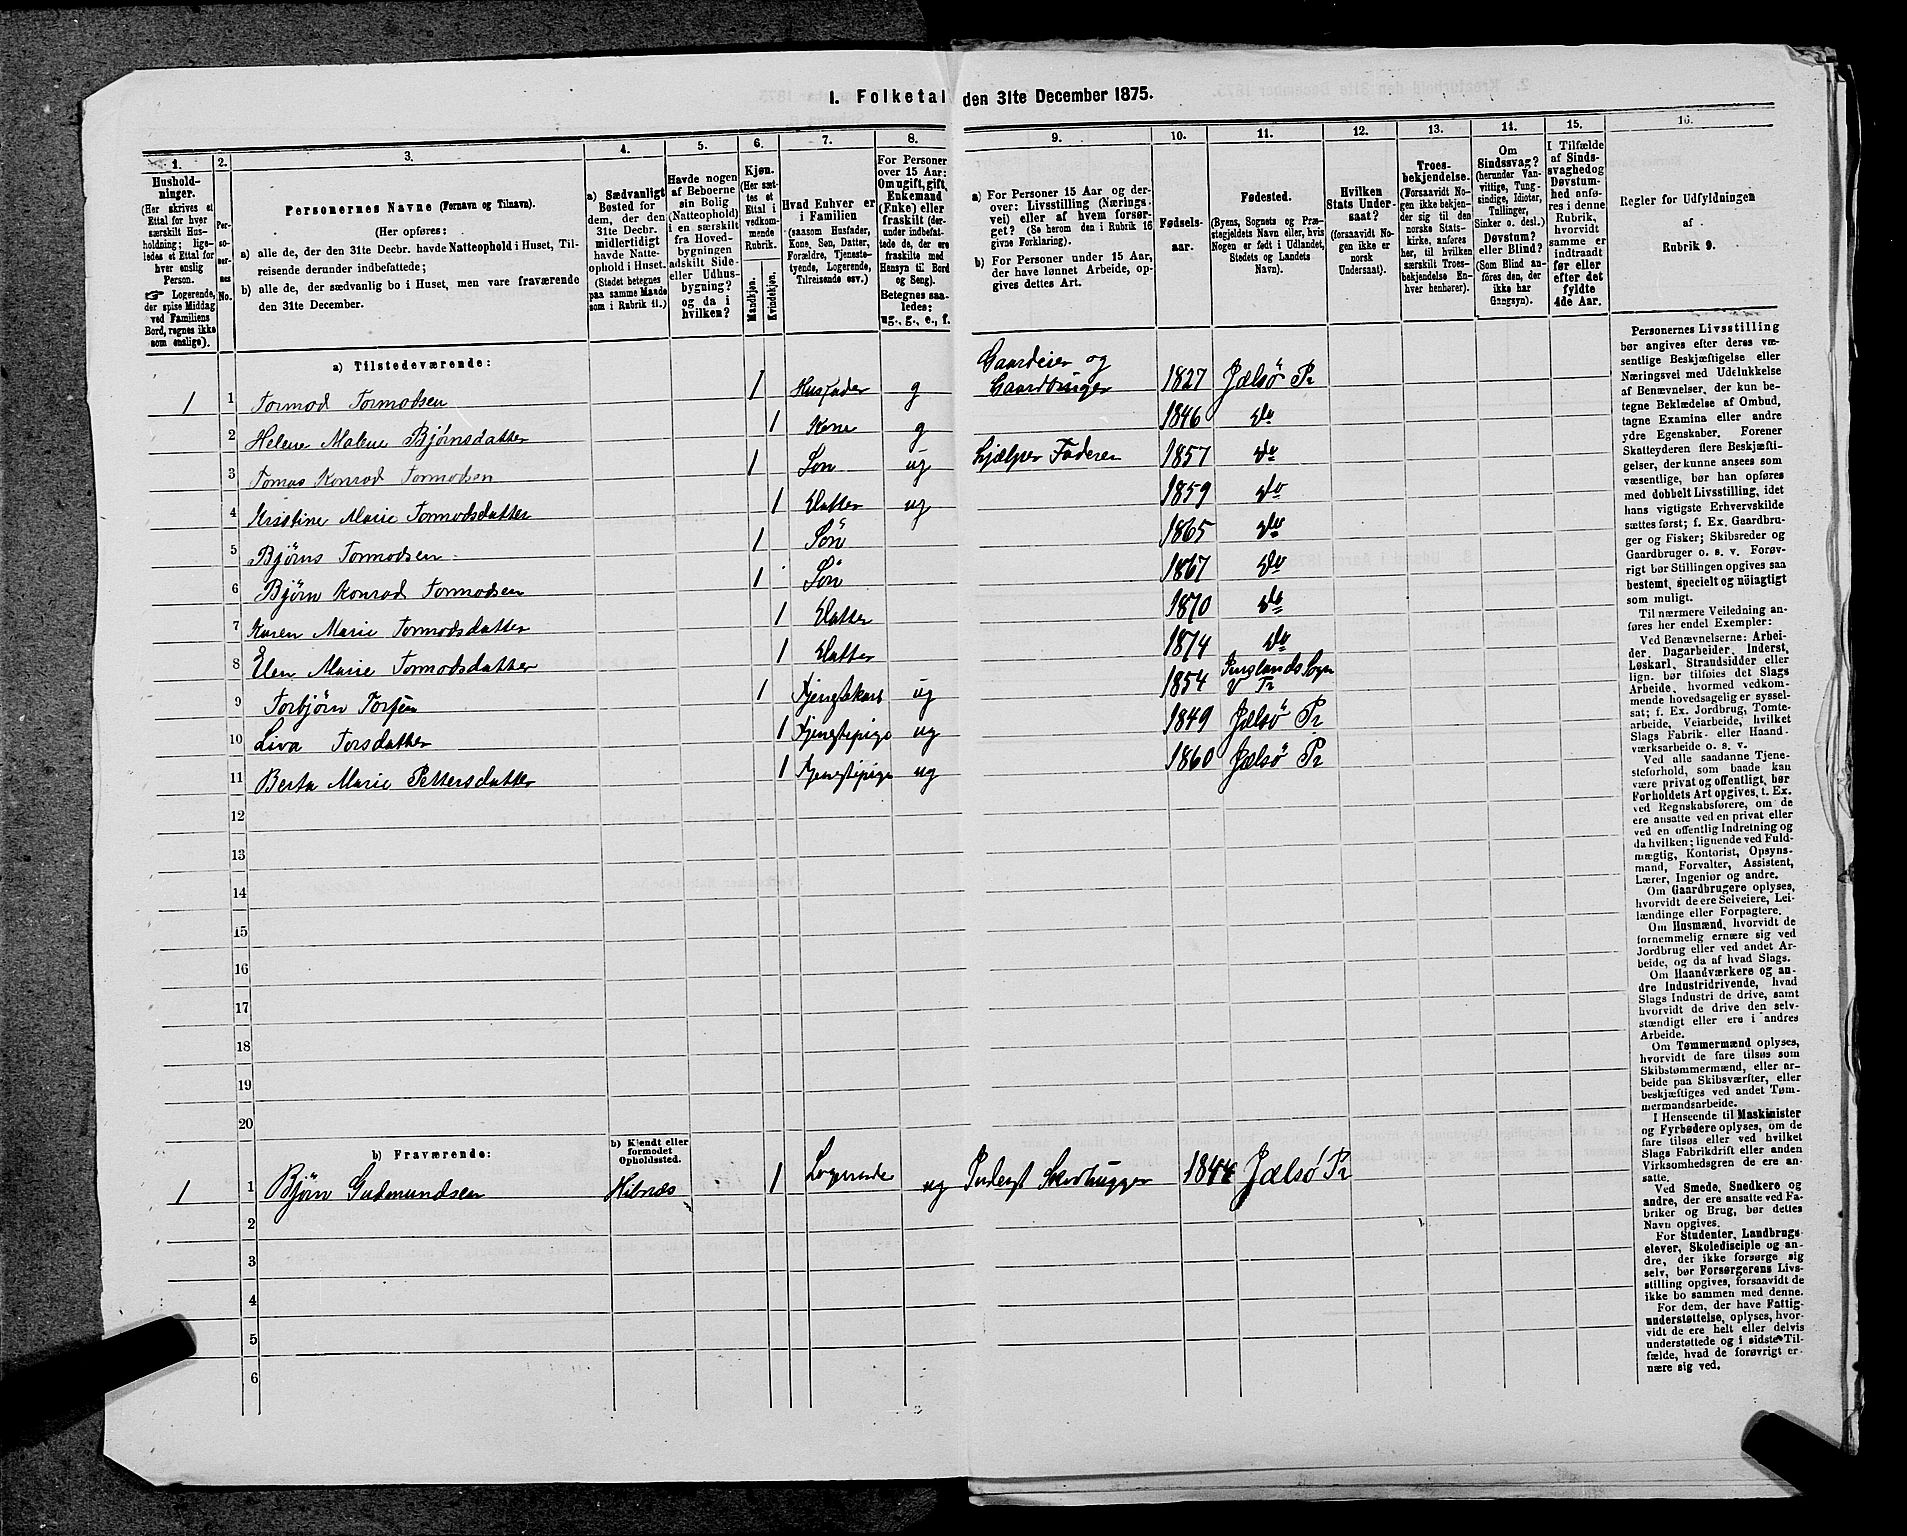 I. Folketal den 31te December 1875.
1. 2. 3. 4. 5. 6. 7. 8. 9. 10. 11. 12. 13. 14. 15. 16.
Hushold-
ninger.
(Her skrives et
Ettal for hver
særskilt Hus-
holdning; lige-
ledes et Ettal for
hver enslig
Person.
☞ Logerende,
der spise Middag
ved Familiens
Bord, regnes ikke
som enslige).
Per-
so-
ner-
nes
No.
Personernes Navne (Fornavn og Tilnavn).
(Her opføres:
a) alle de, der den 31te Decbr. havde Natteophold i Huset, Til-
reisende derunder indbefattede;
b) alle de, der sædvanlig bo i Huset, men vare fraværende
den 31te December.
a) Sædvanligt
Bosted for
dem, der den
31te Decbr.
midlertidigt
havde Natte-
ophold i Huset.
(Stedet betegnes
paa samme Maade
som i Rubrik 11.)
Havde nogen
af Beboerne
sin Bolig
(Natteophold)
i en særskilt
fra Hoved-
bygningen
adskilt Side-
eller Udhus-
bygning?
og da i
hvilken?
Kjøn.
(Her sæt-
tes et
Ettal i
vedkom-
mende
Rubrik.
Mandkjøn.
Kvindekjøn.
Hvad Enhver er
i Familien
(saasom Husfader,
Kone, Søn, Datter,
Forældre, Tjeneste-
tyende, Logerende,
Tilreisende osv.)
For Personer
over 15 Aar:
Om ugift, gift,
Enkemand
(Enke) eller
fraskilt (der-
under indbefat-
tede de, der ere
fraskilte med
Hensyn til Bord
og Seng).
Betegnes saa-
ledes:
ug., g., e., f.
a) For Personer 15 Aar og der-
over: Livsstilling (Nærings-
vei) eller af hvem forsør-
get? (Se herom den i Rubrik 16
givne Forklaring).
b) For Personer under 15 Aar,
der have lønnet Arbeide, op-
gives dettes Art.
Fødsels-
aar.
Fødested.
(Byens, Sognets og Præ-
stegjeldets Navn eller, hvis
Nogen er født i Udlandet,
Stedets og Landets
Navn).
Hvilken
Stats Under-
saat?
(forsaavidt No-
gen ikke er
norsk
Undersaat).
Troes-
bekjendelse.
(Forsaavidt No-
gen ikke bekjen-
der sig til den
norske Stats-
kirke, anføres
her, til hvilken
særskilt Troes-
bekjendelse En-
hver henhører).
Om
Sindssvag?
(herunder Van-
vittige, Tung-
sindige, Idioter,
Tullinger,
Sinker o. desl.)
Døvstum?
eller Blind?
(Som Blind an-
føres den, der
ikke har
Gangsyn).
I Tilfælde
af Sinds-
svaghed og
Døvstum-
hed anfø-
res i denne
Rubrik,
hvorvidt
samme er
indtraadt
før eller
efter det
fyldte
4de Aar.
Regler for Udfyldningen
af
Rubrik 9.
a) Tilstedeværende:
Gaardeier og
1 1 Tormod Tormodsen 1 Husfader g Gaardbruger 1827 Jælsø Pr
2 Helene Malene Bjørnsdatter 1 Kone g 1846 Do
3 Tomas Konrad Tormodsen 1 Søn ug hjælper Faderen 1857 Do
4 Kristine Marie Tormodsdatter 1 Datter ug 1859 Do
5 Bjørns Tormodsen 1 Søn 1865 Do
6 Bjørn Konrad Tormodsen 1 Søn 1867 Do
7 Karen Marie Tormodsdatter 1 Datter 1870 Do
8 Elen Marie Tormodsdatter 1 Datter 1874 Do
9 Torbjørn 1 ug 1854
10 Liva Torsdatter 1 Tjenestepige ug 1849 Jælsø Pr
11 Berta Marie Pettersdatter 1 Tjenestepige ug 1860 Jælsø Pr
12
13
14
15
16
17
18
19
20
b) Fraværende:
b) Kjendt eller
formodet
Opholdssted.
1 1 Bjørn Gudmundsen 1 Logerende ug 1844 Jælsø Pr
2
3
4
5
6
Personernes Livsstilling
bør angives efter deres væ-
sentlige Beskjæftigelse eller
Næringsvei med Udelukkelse
af Benævnelser, der kun be-
tegne Beklædelse af Ombud,
tagne Examina eller andre
ydre Egenskaber. Forener
Skatteyderen flere Beskjæfti-
gelser, der kunne ansees som
væsentlige, bør han opføres
med dobbelt Livsstilling, idet
hans vigtigste Erhvervskilde
sættes først; f. Ex. Gaardbru-
ger og Fisker; Skibsreder og
Gaardbruger o. s. v. Forøv-
rigt bør Stillingen opgives saa
bestemt, specielt og nøiagtigt
som muligt.
Til nærmere Veiledning an-
føres her endel Exempler:
Ved Benævnelserne: Arbei-
der, Dagarbeider, Inderst,
Løskarl, Strandsidder eller
lign. bør tilføies det Slags
Arbeide, hvormed vedkom-
mende hovedsagelig er syssel-
sat; f. Ex. Jordbrug, Tomte-
arbeide, Veiarbeide, hvilket
Slags Fabrik- eller Haand-
værksarbeide o. s. v.
Ved alle saadanne Tjene-
steforhold, som baade kan
være privat og offentligt, bør
Forholdets Art opgives, t. Ex.
ved Regnskabsførere, om de
ere ansatte ved en privat eller
ved en offentlig Indretning og
da hvilken; lignende ved Fuld-
mægtig, Kontorist, Opsyns-
mand, Forvalter, Assistent,
Lærer, Ingeniør og andre.
Om Gaardbrugere oplyses,
hvorvidt de ere Selveiere, Lei-
lændinge eller Forpagtere.
Om Husmænd, hvorvidt de
fornemmelig ernære sig ved
Jordbrug eller ved andet Ar-
beide, og da af hvad Slags.
Om Haandværkere og an-
dre Industridrivende, hvad
Slags Industri de drive, samt
hvorvidt de drive den selv-
stændigt eller ere i andres
Arbeide.
Om Tømmermænd oplyses,
hvorvidt de fare tilsøs som
Skibstømmermænd, eller ar-
beide paa Skibsværfter, eller
beskjæftiges ved andet Tøm-
mermandsarbeide.
I Henseende til Maskinister
og Fyrbødere oplyses, om de
fare tilsøs eller ved hvilket
Slags Fabrikdrift eller anden
Virksomhedsgren de ere an-
satte.
Ved Smede, Snedkere og
andre, der ere ansatte ved Fa-
briker og Brug, bør dettes
Navn opgives.
For Studenter, Landbrugs-
elever, Skoledisciple og an-
dre, der ikke forsørge sig
selv, bør Forsørgerens Livs-
stilling opgives, forsaavidt de
ikke bo sammen med denne.
For dem, der have Fattig-
understøttelse, oplyses, hvor-
vidt de ere helt eller delvis
understøttede og i sidste Til-
fælde, hvad de forøvrigt er-
nære sig ved.